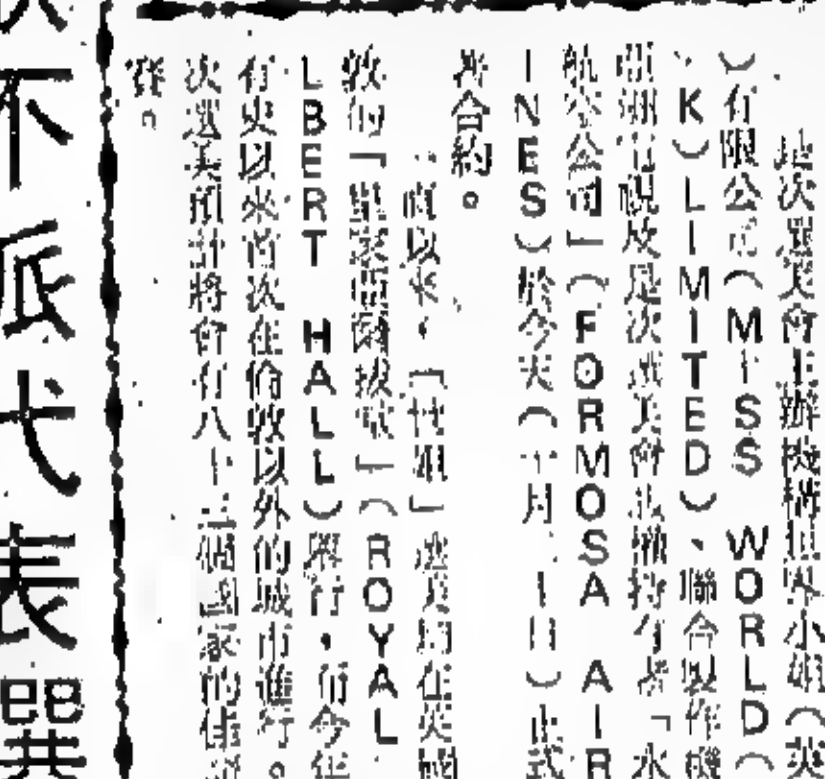 是次選美會主辦機構世界小姐（英
）有限公司（MISS WORLD（
、K）LIMITED）、聯合製作機
亞洲電視及是次選美會主權持有者「水
航空公司」（FORMOSA AIR
INES）於今天（十月 日）正式
署合約。
一直以來，「世姐」選美均在英國
敦的「皇家亞爾拔堂」（ROYAL
LBERT HALL）舉行，而今年
有史以來首次在倫敦以外的城市進行。
次選美預計將會有八十三個國家的佳
賽。
不派代表選